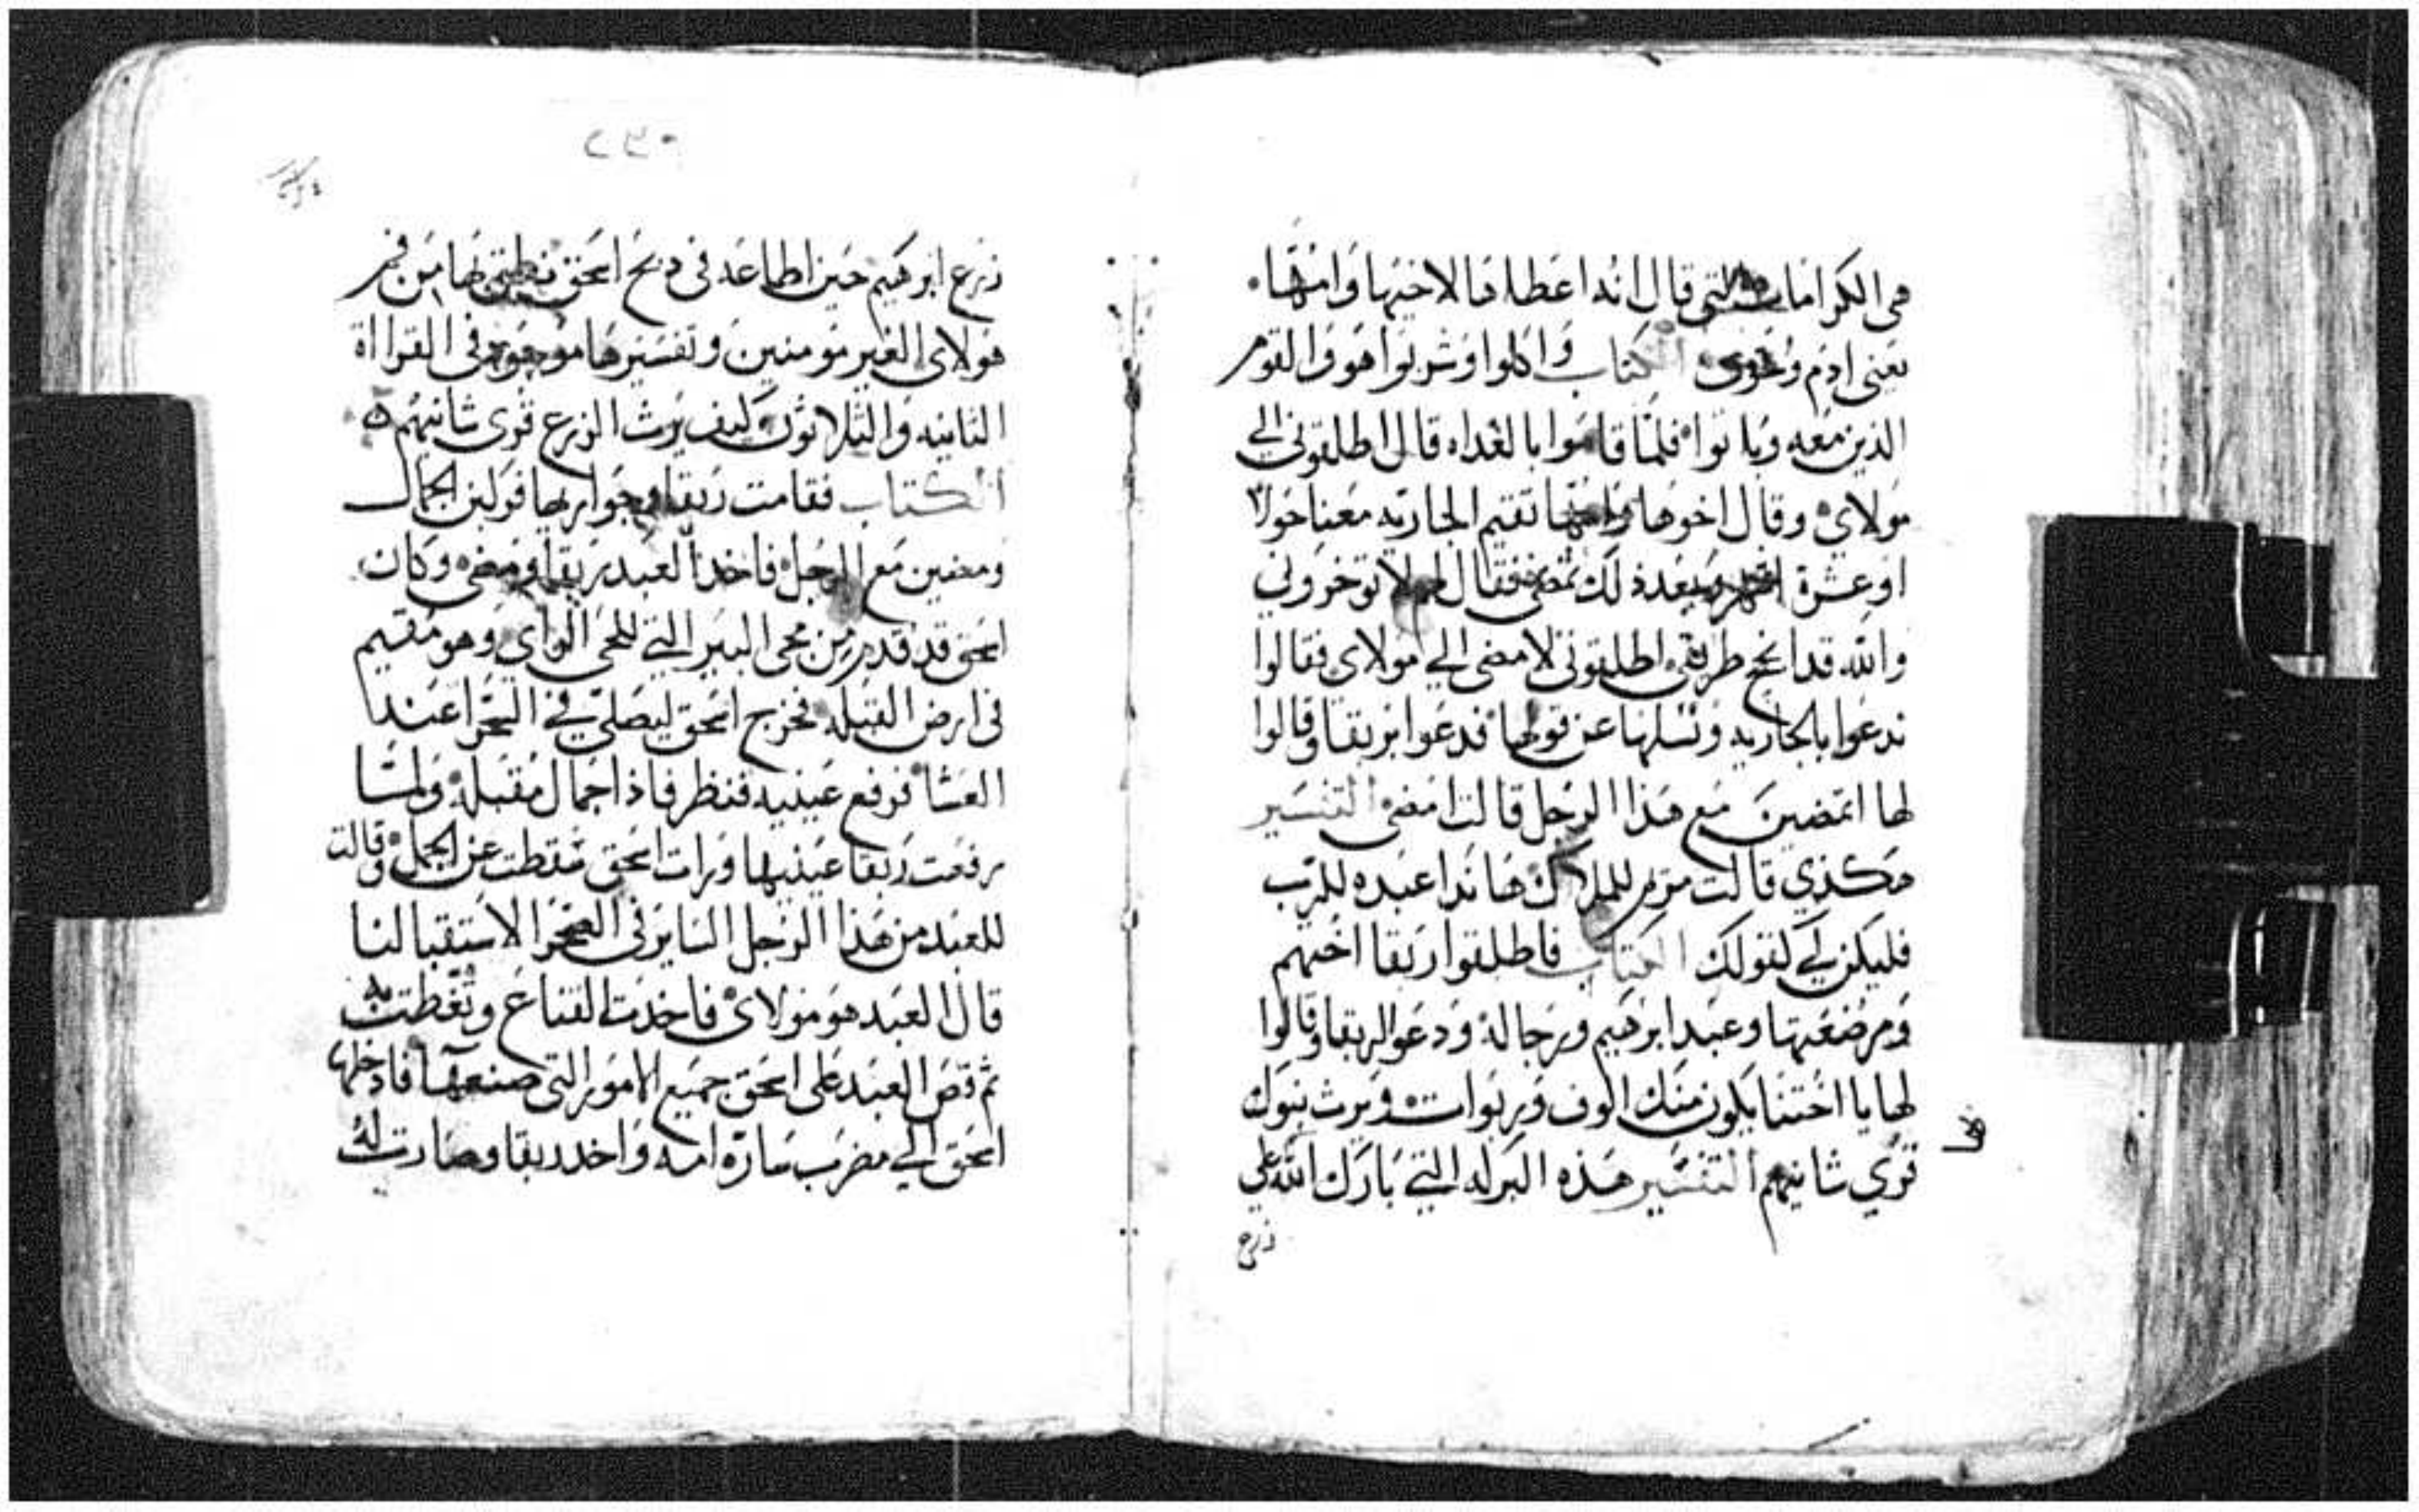 هى الكرامات التى قال انه اعطاها لاخيها وامها
يعنى ادم وحوى الكتاب واكلوا وشربوا هو والقوم
الذين معه وباتوا فلما قاموا بالغداه قال اطلقونى الي
مولاى وقال اخوها وامها تقيم الجاريه معنا حولا
او عشرة اشهر وبعد ذلك تمضى فقال لهم لا توخرونى
والله قد انجح طريقى اطلقونى لامضى الي مولاى فقالوا
ندعوا بالجاريه ونسلها عن قولها فدعوا بربقا وقالوا
لها اتمضين مع هذا الرجل قالت امضى التفسير
هكذي قالت مريم للملاك هانذا عبده للرب
فليكن لي كقولك الكتاب فاطلقوا ربقا اختهم
ومرضعتها وعبد ابرهيم ورجاله ودعوا لربقا وقالوا
لها يا اختنا يكون منك الوف وربوات ويرث بنوك
قري شانيهم التفسير هذه البركه التي بارك الله على
زرع
٢٣٥
زرع ابرهيم حين اطاعه فى دبح اسحق من فم
هولاى الغير مومنين وتفسيرها موجود فى القرااة
الثانيه والثلاثون كيف يرث الزرع قرى شانيهم
الكتاب فقامت ربقا وجواريها فركبن الجمال
ومضين مع الرجل فاخد العبد ربقا ومضى وكان
اسحق قد قدم من مجى البير التي للحى الراي وهو مقيم
فى ارض القبله فخرج اسحق ليصلى في الصحرا عند
العشا فرفع عينيه فنظر فاذا جمال مقبله ولما
رفعت ربقا عينيها ورات اسحق سقطت عن الجمل وقالت
للعبد من هذا الرجل الساير فى الصحرا لاستقبالنا
قال العبد هو مولاى فاخدت القناع وتغطت به
ثم قص العبد على اسحق جميع الامور التى صنعها فادخلها
اسحق الي مضرب ساره امه واخد ربقا وصارت له